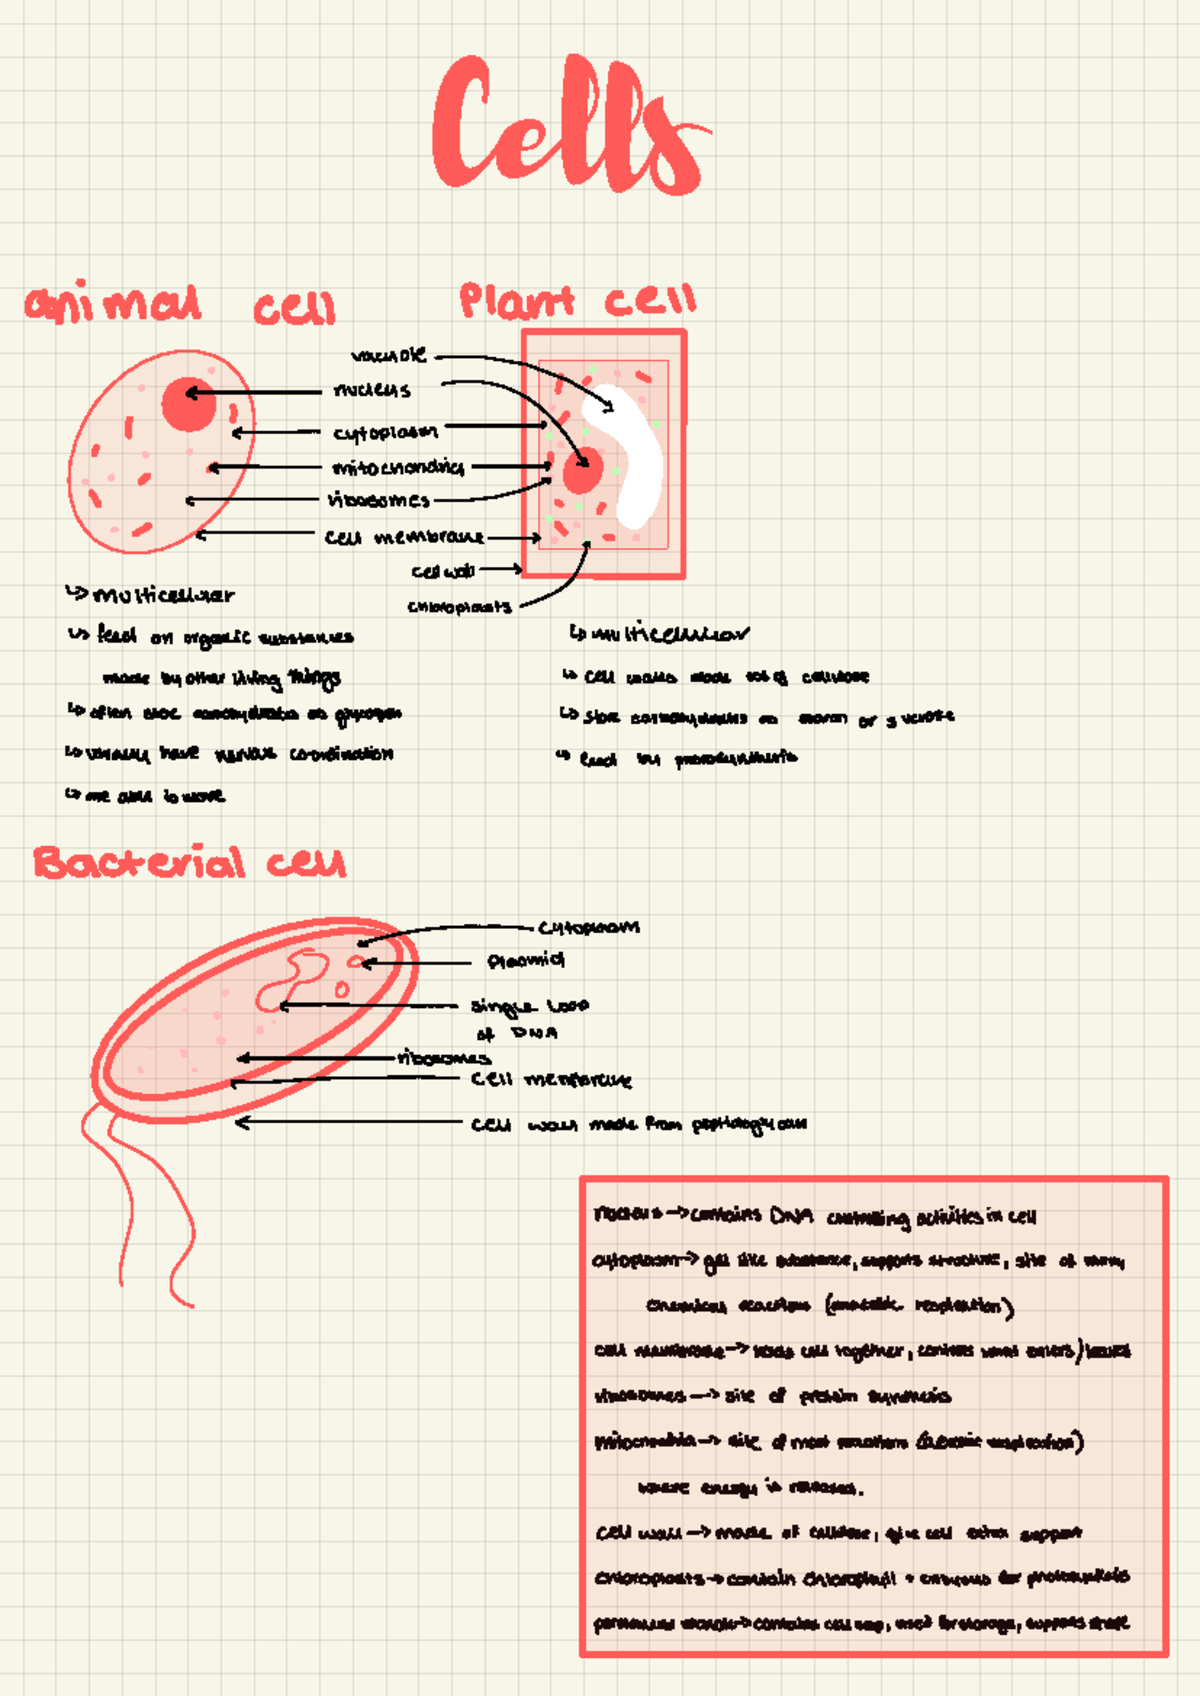 Cells
animal cell
Plant cell
vacuole
nucleus
cytoplasm
mitochondria
ribosomes
cell membrane
cell wall
chloroplasts
↳ multicellular
↳ feed on organic substances
made by other living things
↳ often store carbohydrates as glycogen
↳ usually have nervous coordination
↳ are able to move
↳ multicellular
↳ cell walls made out of cellulose
↳ store carbohydrates as starch or sucrose
↳ feed by photosynthesis
Bacterial cell
cytoplasm
plasmid
single loop
of DNA
ribosomes
cell membrane
cell wall made from peptidoglycan
nucleus → contains DNA controlling activities in cell
cytoplasm → gel like substance, supports structure, site of many
chemical reactions (anaerobic respiration)
cell membrane → holds cell together, controls what enters/leaves
ribosomes → site of protein synthesis
mitochondria → site of most reactions (aerobic respiration)
where energy is released.
cell wall → made of cellulose, give cell extra support
chloroplasts → contain chlorophyll + enzymes for photosynthesis
permanent vacuole → contains cell sap, used for storage, supports shape